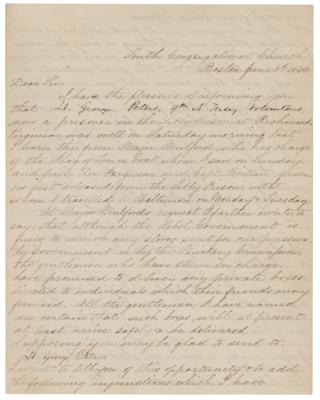 South Congregational Church
Boston, June 3d
Dear Sir
I have the pleasure of informing you
that Lt. George Peters, 9th N. Jersey Volunteers,
now a prisoner in the Libby Prison at Richmond,
Virginia, was well on Saturday morning last
I learn this from Major Mulford, who has charge
of the Flag of Truce boat, whom I saw on Sunday
and from Ferguson and Capt. prison-
ers just released from the Libby Prison, with
whom I travelled to Baltimore on Monday & Tuesday.
At Major Mulford's request I farther write to
say, that although the Rebel Government re-
fuses to receive any stores sent for our prisoners
by Government or by the Sanitary Commission
the gentlemen who have them in charge
have promised to deliver any private boxes
directed to individuals which their friends may
forward. All the gentlemen I have named
are certain that such boxes, will at present
at least, arrive safely & be delivered.
Supposing you may be glad to send to
Lt. George Peters
I write to tell you of this opportunity & to add
the following which I have